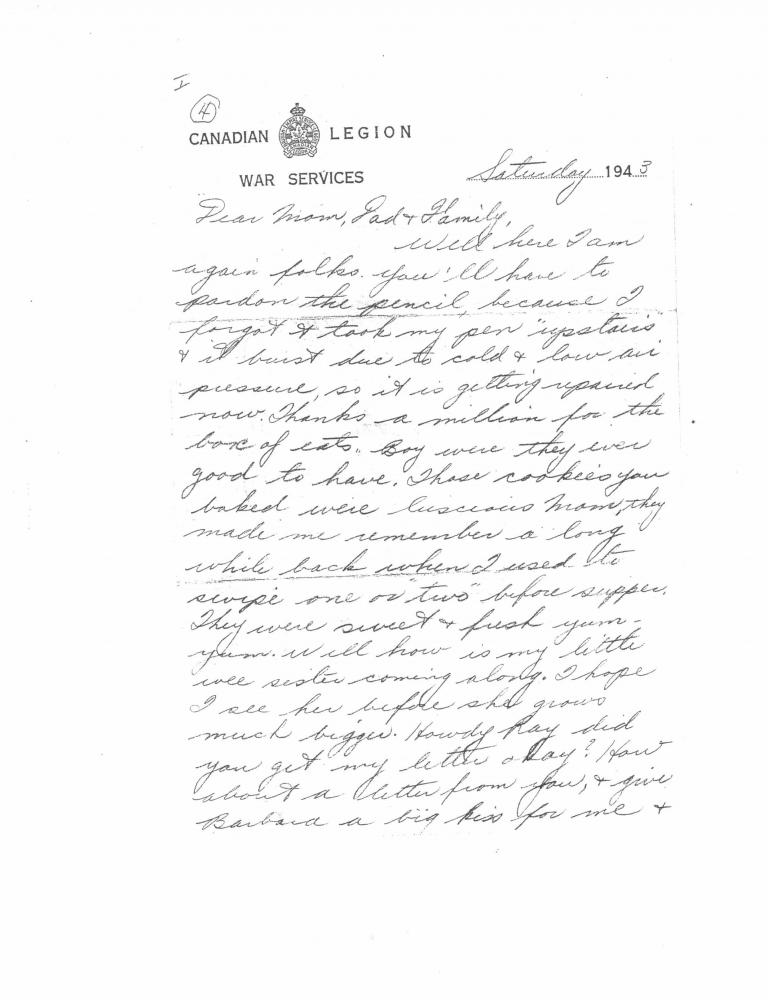 I
4
CANADIAN LEGION
WAR SERVICES
Saturday 1943
Dear Mom, Dad & Family,
Well here I am
again folks. you'll have to
pardon the pencil, because I
forgot & took my pen "upstairs"
& it burst due to cold & low air
pressure, so it is getting repaired
now. Thanks a million for the
box of eats. Boy were they ever
good to have. Those cookies you
baked were luscious Mom, they
made me remember a long
while back when I used to
swipe one or "two" before supper.
They were sweet & fresh yum-
yum. Well how is my little
wee sister coming along. I hope
I see her before she grows
much bigger. Howdy Ray did
you get my letter okay? How
about a letter from you, & give
Barbara a big kiss for me &